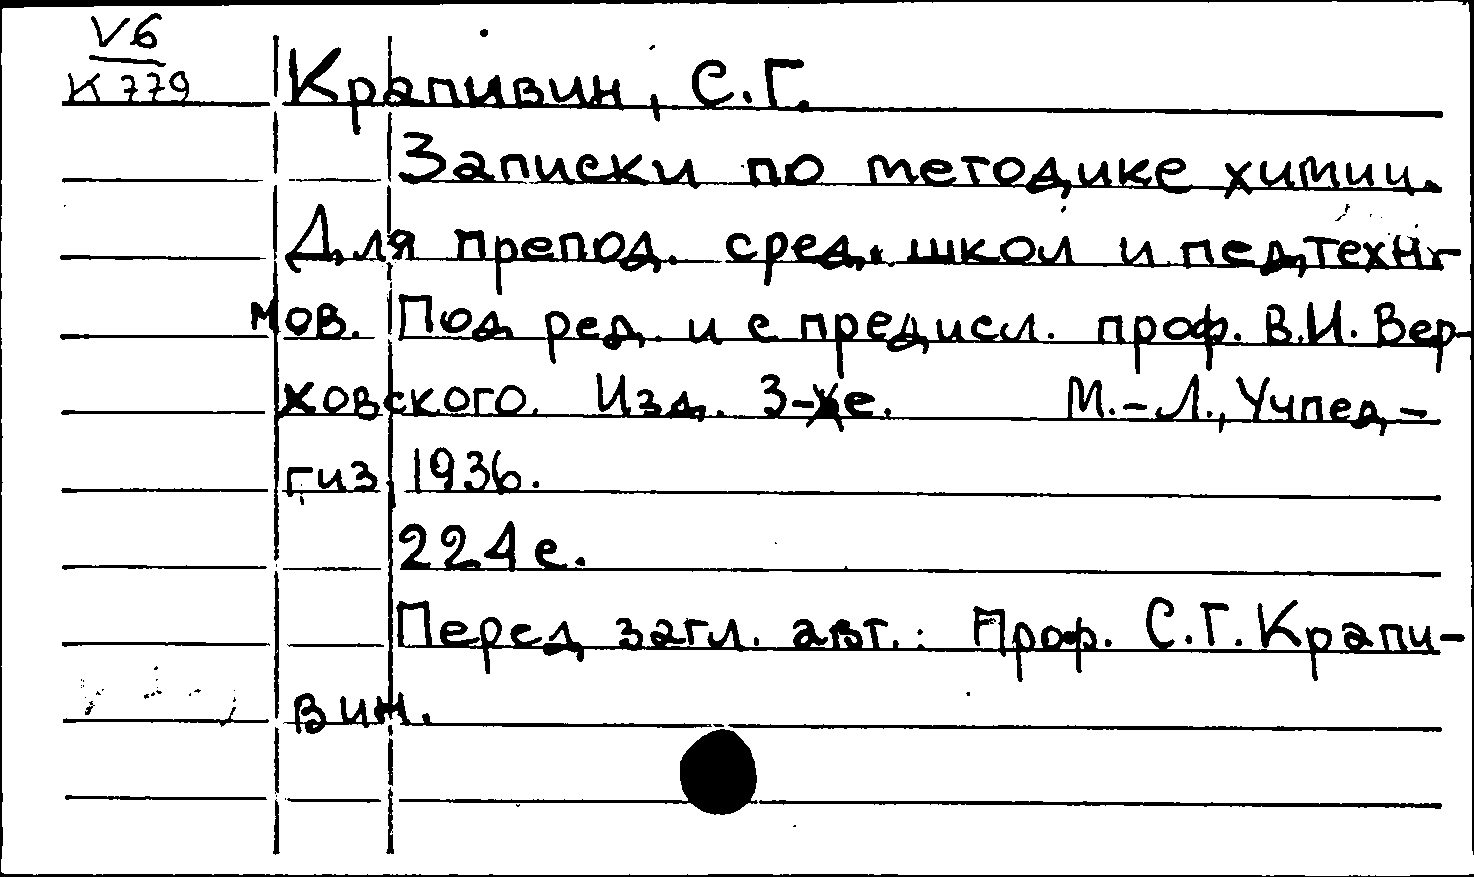 V6
К 779
Крапивин, С.Г.
Записки по методике химии.
Для препод. сред. школ и пед,техни-
мов. Под ред. и с предисл. проф. В.И. Вер-
ховского. Изд. 3-е. М.-Л., Учпед-
гиз, 1936.
224 с.
Перед загл. авт.: Проф. С.Г. Крапи-
вин.